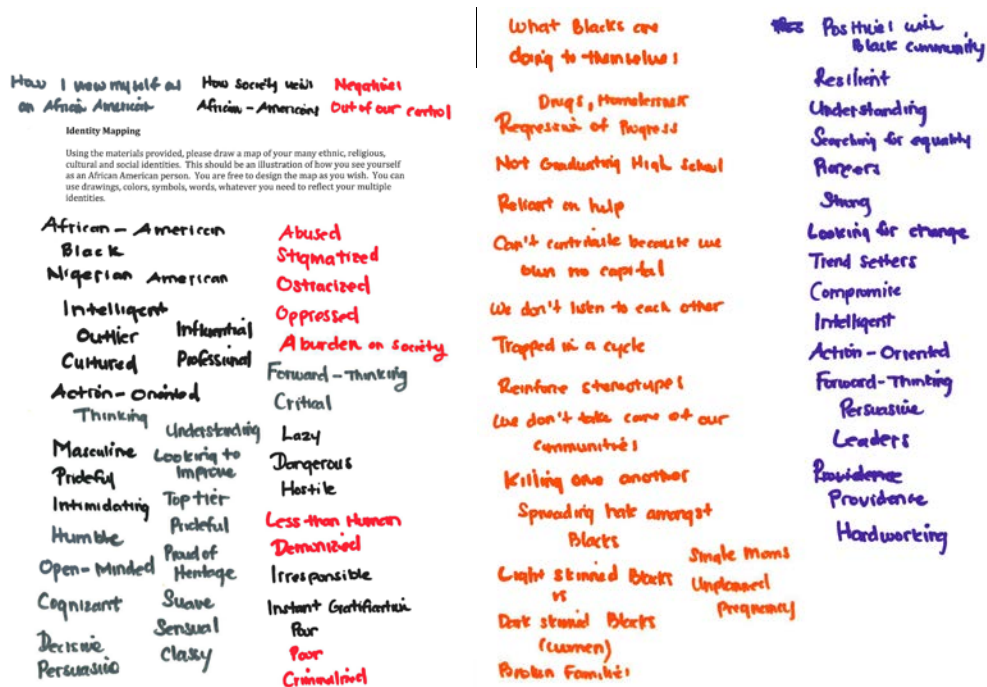 How I view myself as
an African American
How society views
African-Americans
Negatives
Out of our control
Identity Mapping
Using the materials provided, please draw a map of your many ethnic, religious,
cultural and social identities. This should be an illustration of how you see yourself
as an African American person. You are free to design the map as you wish. You can
use drawings, colors, symbols, words, whatever you need to reflect your multiple
identities.
African-American
Black
Nigerian American
Intelligent
Outlier
Influential
Cultured
Professional
Action-oriented
Thinking
Masculine
Prideful
Intimidating
Humble
Open-Minded
Cognizant
Decisive
Persuasive
Understanding
Looking to
Improve
Top tier
Prideful
Proud of
Heritage
Suave
Sensual
Classy
Abused
Stigmatized
Ostracized
Oppressed
A burden on society
Forward-Thinking
Critical
Lazy
Dangerous
Hostile
Less than Human
Demonized
Irresponsible
Instant Gratification
Poor
Poor
Criminalized
What Blacks are
doing to themselves
Drugs, Homelessness
Regression of Progress
Not Graduating High School
Reliant on help
Can't contribute because we
own no capital
We don't listen to each other
Trapped in a cycle
Reinforce stereotypes
We don't take care of our
communities
Killing one another
Spreading hate amongst
Blacks
Light skinned Blacks
vs
Dark skinned Blacks
(women)
Broken Families
Single Moms
Unplanned
Pregnancy
Positives with
Black community
Resilient
Understanding
Searching for equality
Pioneers
Strong
Looking for change
Trend Setters
Compromise
Intelligent
Action-Oriented
Forward-Thinking
Persuasive
Leaders
Providence
Providence
Hardworking